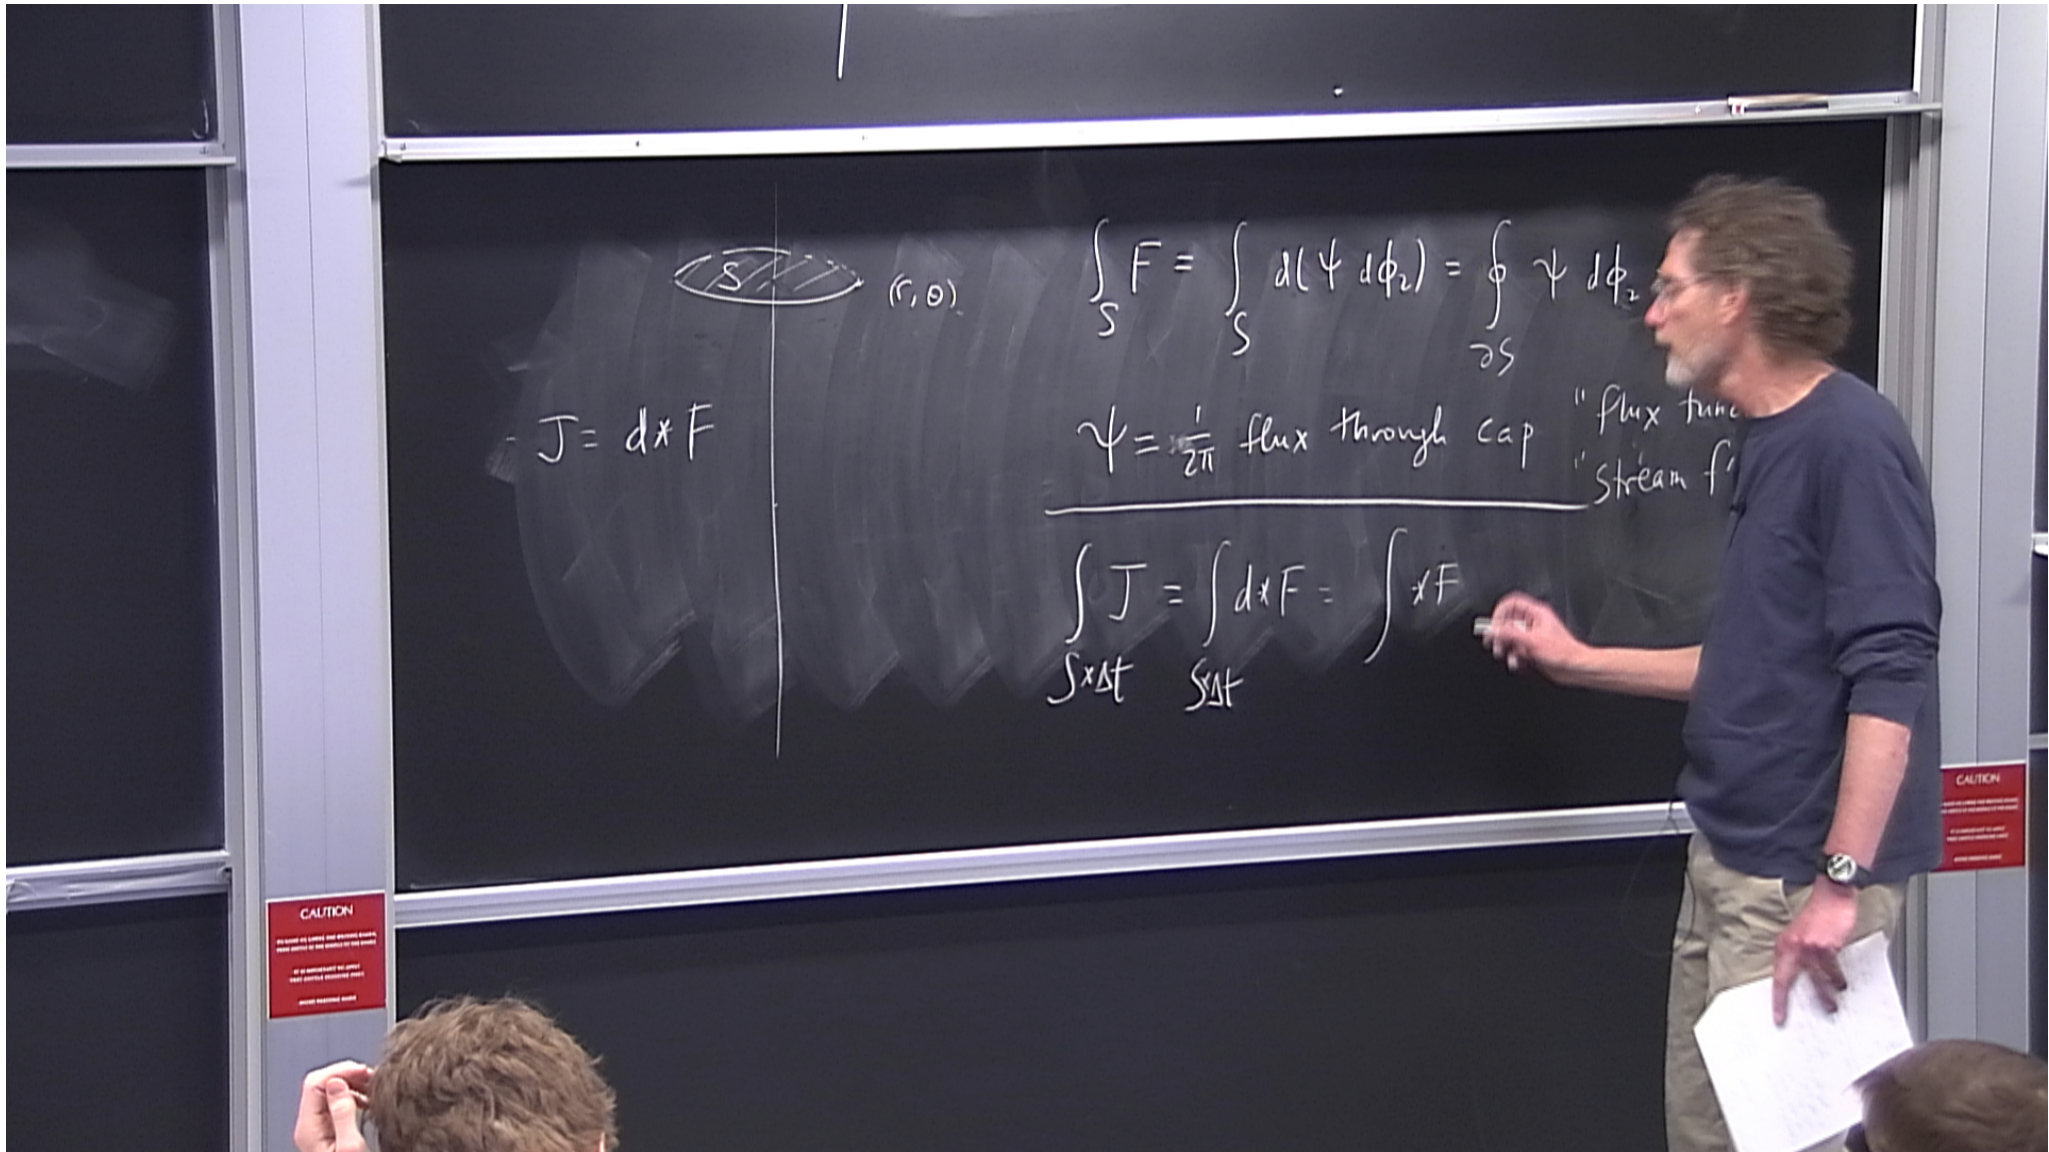 S
(r, θ)
J = d*F
∫_S F = ∫_S d(ψ dϕ₂) = ∮_∂S ψ dϕ₂
ψ = 1/2π flux through cap
"flux func
"stream f
∫_{S×Δt} J = ∫_{S×Δt} d*F = ∫ *F
CAUTION
CAUTION